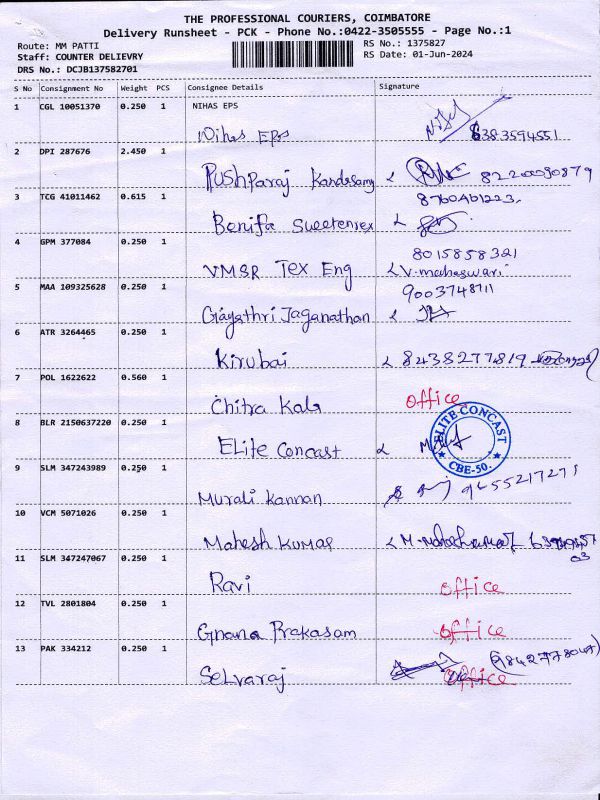 THE PROFESSIONAL COURIERS, COIMBATORE
Delivery Runsheet - PCK - Phone No.:0422-3505555 - Page No.:1
Route: MM PATTI RS No.: 1375827
Staff: COUNTER DELIEVRY RS Date: 01-Jun-2024
DRS No.: DCJB137582701
S No Consignment No Weight PCS Consignee Details Signature
1 CGL 10051370 0.250 1 NIHAS EPS
Nihas EPS 6383594551
2 DPI 287676 2.450 1
Pushparaj Kandasamy 8220090879
3 TCG 41011462 0.615 1 8760401223
Bonifa Sweetensex
4 GPM 377084 0.250 1 8015858321
VMSR Tex Eng V. maheswari
5 MAA 109325628 0.250 1 9003748711
Gayathri Jaganathan
6 ATR 3264465 0.250 1
Kirubai 8438277819
7 POL 1622622 0.560 1
Chitra Kala office
8 BLR 2150637220 0.250 1
Elite Concast ELITE CONCAST CBE-50.
9 SLM 347243989 0.250 1
Murali Kannan 9655217271
10 VCM 5071026 0.250 1
Mahesh Kumar
11 SLM 347247067 0.250 1
Ravi office
12 TVL 2801804 0.250 1
Gnana Prakasam office
13 PAK 334212 0.250 1 (9842778047)
Selvaraj office